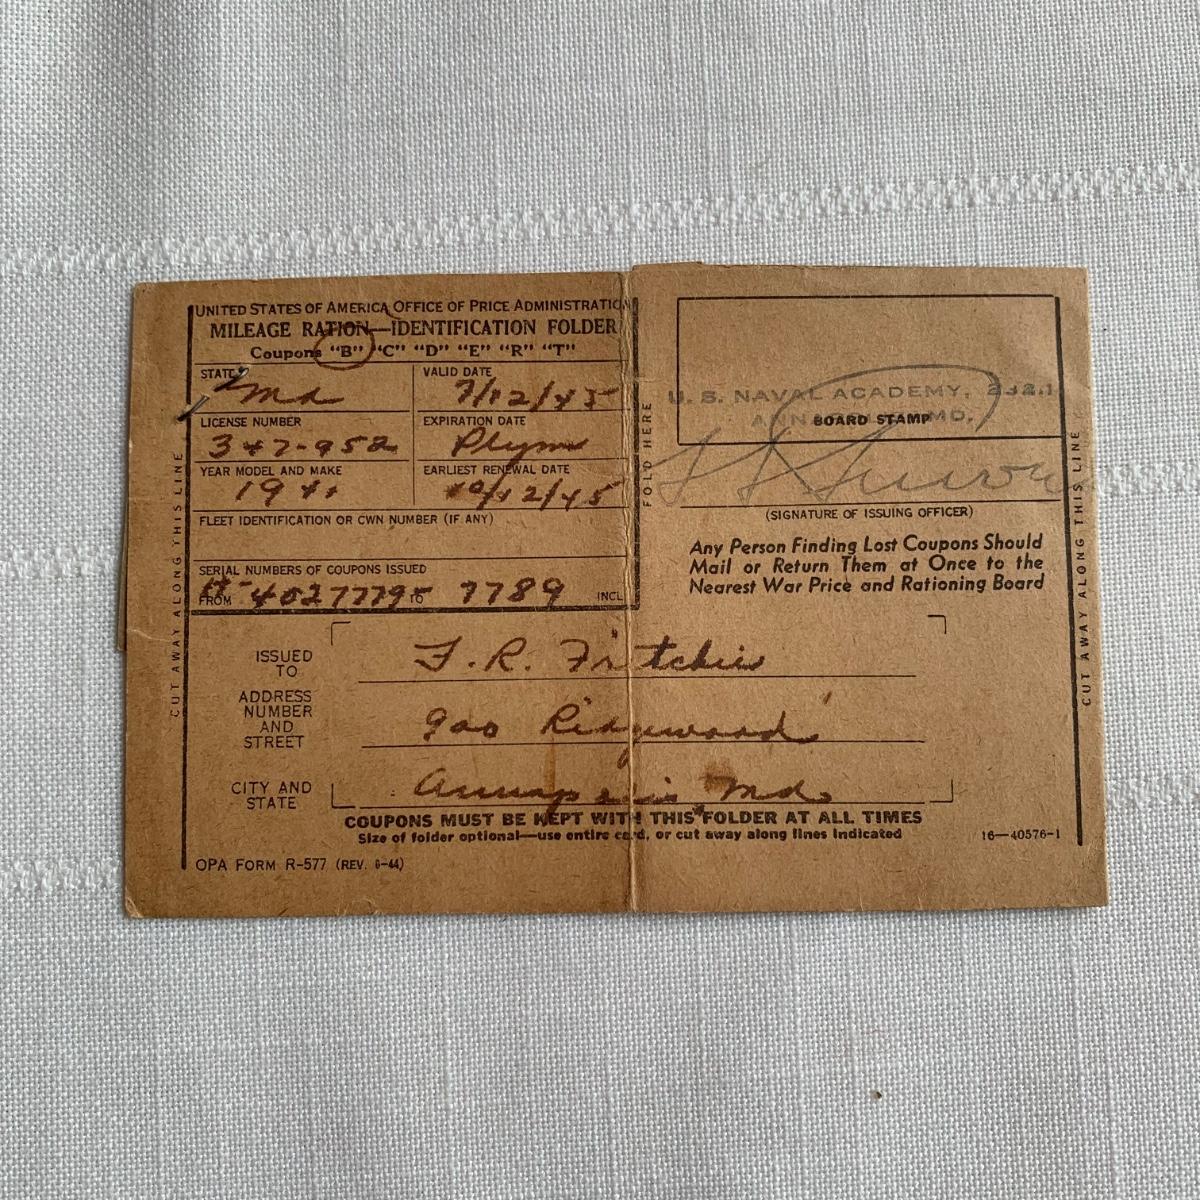 UNITED STATES OF AMERICA OFFICE OF PRICE ADMINISTRATION
MILEAGE RATION—IDENTIFICATION FOLDER
Coupons "B" "C" "D" "E" "R" "T"
STATE
Md
VALID DATE
7/12/45
LICENSE NUMBER
347-952
EXPIRATION DATE
Plym
YEAR MODEL AND MAKE
1941
EARLIEST RENEWAL DATE
10/12/45
FLEET IDENTIFICATION OR CWN NUMBER (IF ANY)
SERIAL NUMBERS OF COUPONS ISSUED
FROM 40277795 TO 7789 INCL
CUT AWAY ALONG THIS LINE
FOLD HERE
U. S. NAVAL ACADEMY, 232.1
ANNAPOLIS, MD.
BOARD STAMP
(SIGNATURE OF ISSUING OFFICER)
Any Person Finding Lost Coupons Should
Mail or Return Them at Once to the
Nearest War Price and Rationing Board
CUT AWAY ALONG THIS LINE
ISSUED
TO
F. R. Fritchie
ADDRESS
NUMBER
AND
STREET
900 Ridgewood
CITY AND
STATE
Annapolis Md.
COUPONS MUST BE KEPT WITH THIS FOLDER AT ALL TIMES
Size of folder optional—use entire card, or cut away along lines indicated
16—40576-1
OPA FORM R-577 (REV. 6-44)